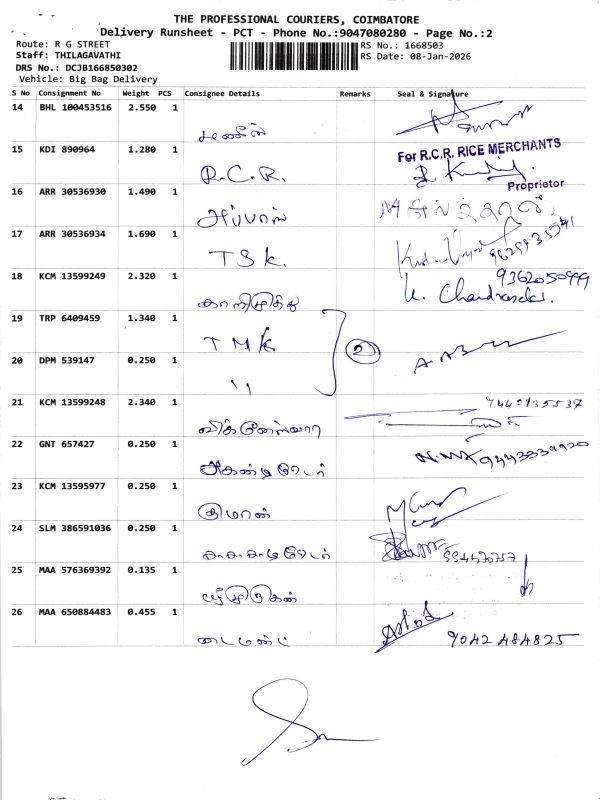 THE PROFESSIONAL COURIERS, COIMBATORE
Delivery Runsheet - PCT - Phone No.:9047080280 - Page No.:2
Route: R G STREET
RS No.: 1668503
Staff: THILAGAVATHI
RS Date: 08-Jan-2026
DRS No.: DCJB166850302
Vehicle: Big Bag Delivery
S No Consignment No Weight PCS Consignee Details Remarks Seal & Signature
14 BHL 100453516 2.550 1
15 KDI 890964 1.280 1
For R.C.R. RICE MERCHANTS
R.C.R.
Proprietor
16 ARR 30536930 1.490 1
அப்பாஸ்
17 ARR 30536934 1.690 1
T S K.
18 KCM 13599249 2.320 1
9362050999
K. Chandrasek
காளிமுத்து
19 TRP 6409459 1.340 1
T M K
2
20 DPM 539147 0.250 1
11
21 KCM 13599248 2.340 1
விக்னேஸ்வரா
22 GNT 657427 0.250 1
9443339920
23 KCM 13595977 0.250 1
24 SLM 386591036 0.250 1
25 MAA 576369392 0.135 1
26 MAA 650884483 0.455 1
டைமண்ட்
9042484825